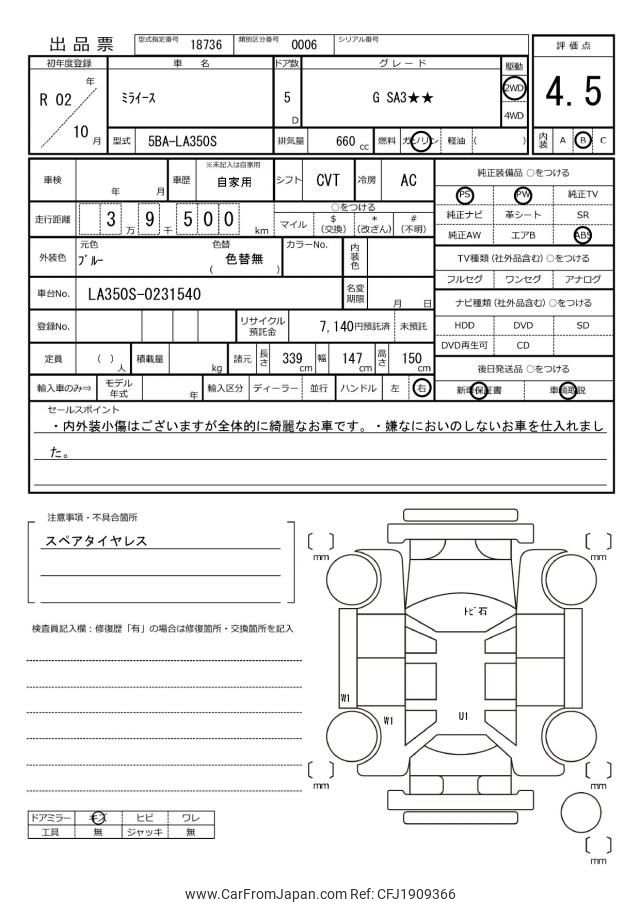 出品票 型式指定番号 18736 類別区分番号 0006 シリアル番号
評価点
4.5
初年度登録 車名 ドア数 グレード 駆動
R 02 年 10 月 ミライース 5 D G SA3★★ 2WD 4WD
型式 5BA-LA350S 排気量 660 cc 燃料 ガソリン 軽油 ( ) 内装 A B C
車検 年 月 車歴 ※未記入は自家用 自家用 シフト CVT 冷房 AC
純正装備品 ○をつける
PS PW 純正TV
純正ナビ 革シート SR
純正AW エアB ABS
走行距離 3 万 9 千 5 0 0 km ○をつける マイル $ (交換) * (改ざん) # (不明)
外装色 元色 ブルー 色替 ( 色替無 ) カラーNo. 内装色
TV種類 (社外品含む) ○をつける
フルセグ ワンセグ アナログ
車台No. LA350S-0231540 名変期限 月 日
ナビ種類 (社外品含む) ○をつける
HDD DVD SD
DVD再生可 CD
登録No. リサイクル預託金 7,140円預託済 未預託
定員 ( ) 人 積載量 kg 諸元 長さ 339 cm 幅 147 cm 高さ 150 cm
後日発送品 ○をつける
新車保証書 車輌取説
輸入車のみ⇒ モデル年式 年 輸入区分 ディーラー 並行 ハンドル 左 右
セールスポイント
・内外装小傷はございますが全体的に綺麗なお車です。・嫌なにおいのしないお車を仕入れまし
た。
注意事項・不具合箇所
スペアタイヤレス
検査員記入欄：修復歴「有」の場合は修復箇所・交換箇所を記入
〔 〕 mm
〔 〕 mm
トビ石
W1
W1
U1
〔 〕 mm
〔 〕 mm
〔 〕 mm
ドアミラー キズ ヒビ ワレ
工具 無 ジャッキ 無
www.CarFromJapan.com Ref: CFJ1909366